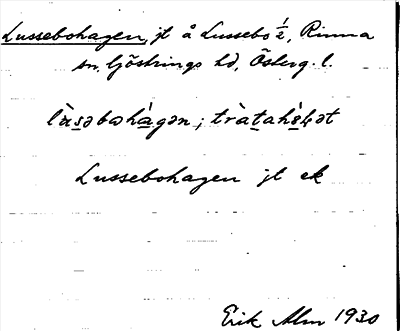 Lussebohagen, jt å Lussebo ½, Rinna
sn. Göstrings hd, Österg. l.
lùsəbohágən; tràtahélət
Lussebohagen jt ek
Erik Alm 1930